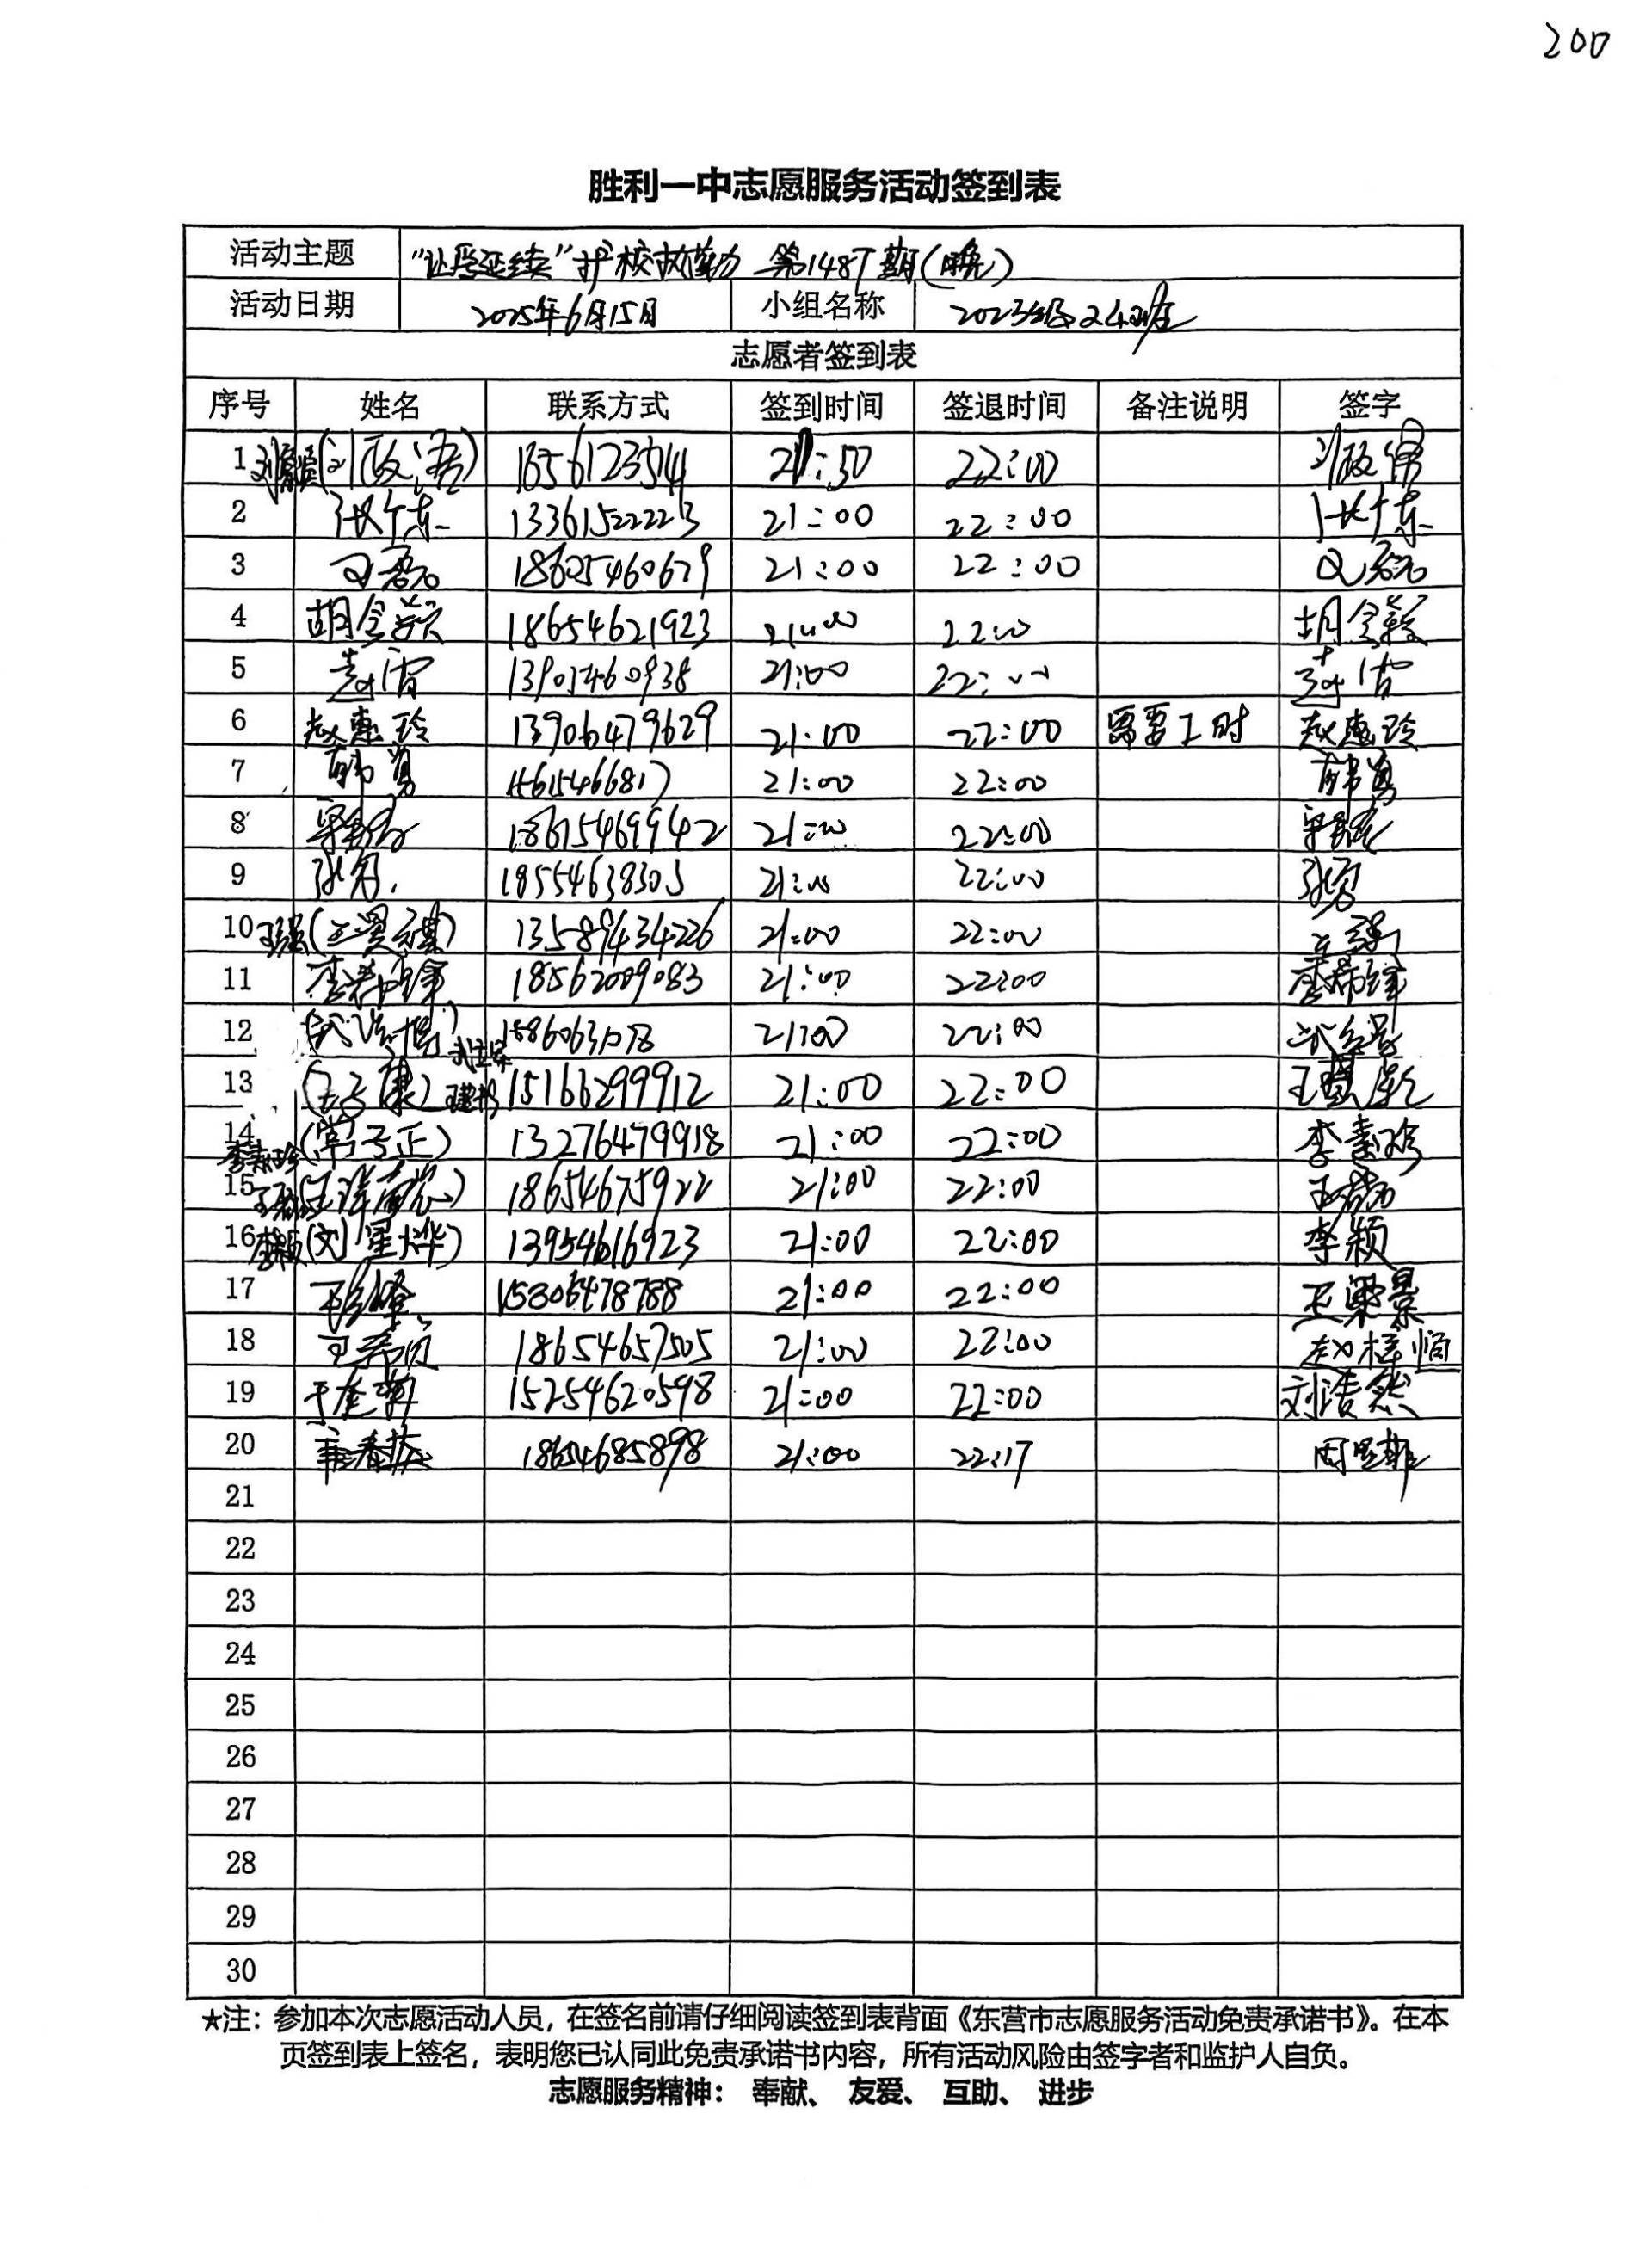 200
胜利一中志愿服务活动签到表
活动主题 “让爱延续”护校执勤 第1487期(晚)
活动日期 2025年6月15日 小组名称 2023级24班
志愿者签到表
序号 姓名 联系方式 签到时间 签退时间 备注说明 签字
1 22:00
2 13361522223 21:00 22:00
3 18625460679 21:00 22:00
4 18654621923 21:00 22:00
5 21:00 22:00
6 赵惠玲 13906479629 21:00 22:00 需要工时 赵惠玲
7 韩勇 21:00 22:00 韩勇
8 18615469942 21:00 22:00
9 张勇 18554638303 21:00 22:00 张勇
10 王强 13589434226 21:00 22:00 王强
11 李希锋 18562009083 21:00 22:00 李希锋
12 21:00 22:00
13 15166299912 21:00 22:00
14 李素珍(常子正) 13276479918 21:00 22:00 李素珍
15 18654675922 21:00 22:00
16 李颖(刘星烨) 13954616923 21:00 22:00 李颖
17 15306478788 21:00 22:00 王梁景
18 18654657505 21:00 22:00 赵梓恒
19 于奎军 15254620598 21:00 22:00 刘浩然
20 18654685898 21:00 22:17
21
22
23
24
25
26
27
28
29
30
★注：参加本次志愿活动人员，在签名前请仔细阅读签到表背面《东营市志愿服务活动免责承诺书》。在本
页签到表上签名，表明您已认同此免责承诺书内容，所有活动风险由签字者和监护人自负。
志愿服务精神： 奉献、 友爱、 互助、 进步